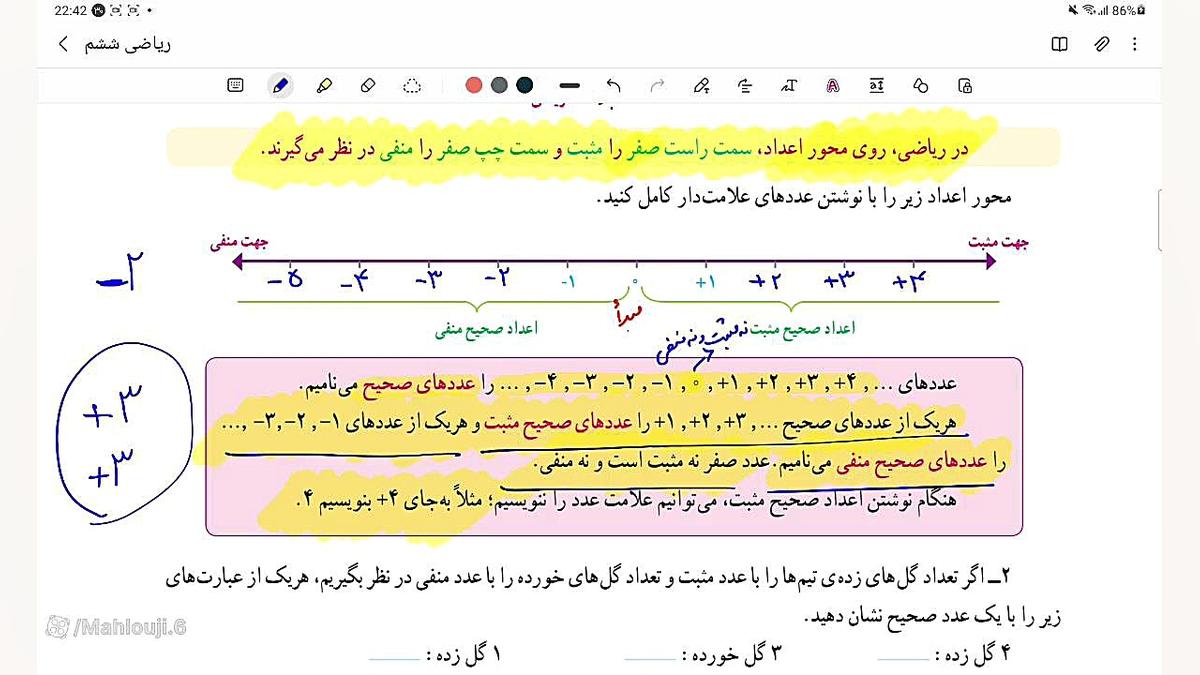 22:42 86%
ریاضی ششم
در ریاضی، روی محور اعداد، سمت راست صفر را مثبت و سمت چپ صفر را منفی در نظر می‌گیرند.
محور اعداد زیر را با نوشتن عددهای علامت‌دار کامل کنید.
جهت منفی جهت مثبت
-۵ -۴ -۳ -۲ -۱ ۰ +۱ +۲ +۳ +۴
-۲
مبدأ
اعداد صحیح منفی اعداد صحیح مثبت
نه مثبت و نه منفی
عددهای ... , +۴ , +۳ , +۲ , +۱ , ۰ , -۱ , -۲ , -۳ , -۴ , ... را عددهای صحیح می‌نامیم.
هریک از عددهای صحیح ... , +۳ , +۲ , +۱ را عددهای صحیح مثبت و هریک از عددهای -۱ , -۲ , -۳ , ...
را عددهای صحیح منفی می‌نامیم. عدد صفر نه مثبت است و نه منفی.
هنگام نوشتن اعداد صحیح مثبت، می‌توانیم علامت عدد را ننویسیم؛ مثلاً به‌جای +۴ بنویسیم ۴.
+۳
+۳
۲ـ اگر تعداد گل‌های زده‌ی تیم‌ها را با عدد مثبت و تعداد گل‌های خورده را با عدد منفی در نظر بگیریم، هریک از عبارت‌های
زیر را با یک عدد صحیح نشان دهید.
۴ گل زده : ۳ گل خورده : ۱ گل زده :
/Mahlouji.6